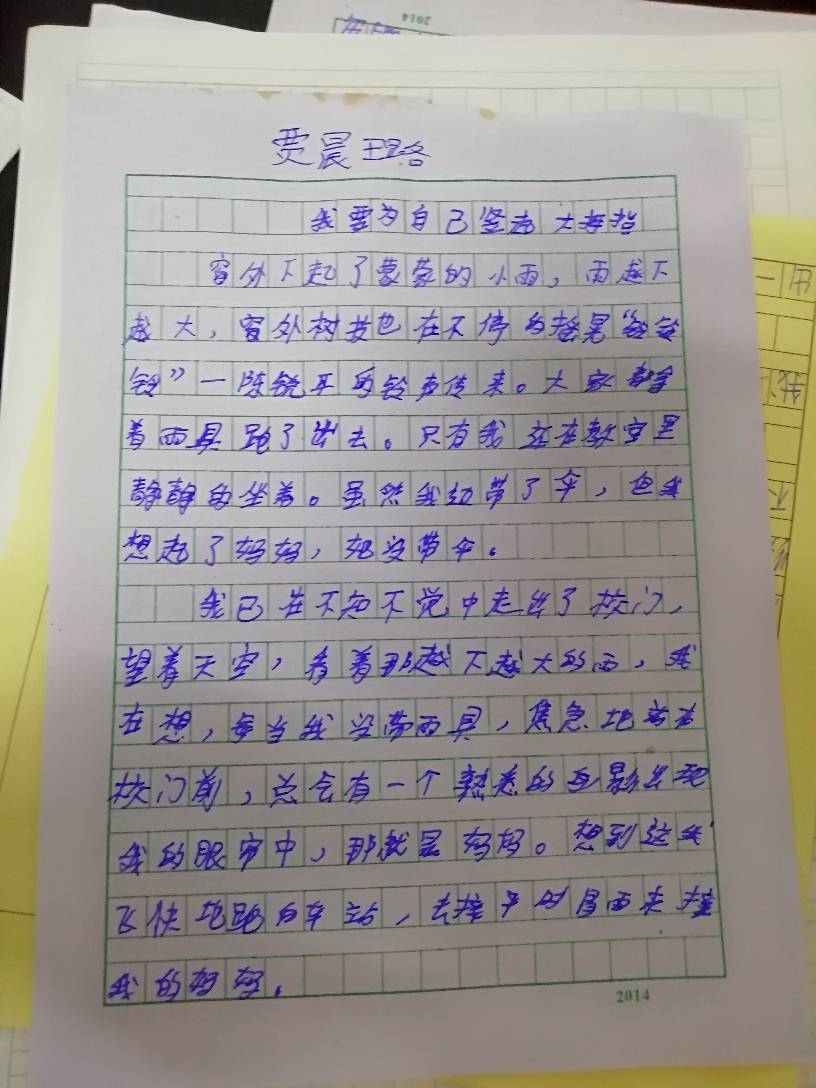 2014
贾晨璐
我要为自己竖起大拇指
窗外下起了蒙蒙的小雨，雨越下
越大，窗外树枝也在不停的摇晃“铃铃
铃”一阵锐耳的铃声传来。大家都拿
着雨具跑了出去。只有我还在教室里
静静的坐着。虽然我也带了伞，但我
想起了妈妈，她没带伞。
我已在不知不觉中走出了校门，
望着天空，看着那越下越大的雨，我
在想，每当我没带雨具，焦急地站在
校门前，总会有一个熟悉的身影出现
我的眼帘中，那就是妈妈。想到这我
飞快地跑向车站，去接平时冒雨来接
我的妈妈。
2014